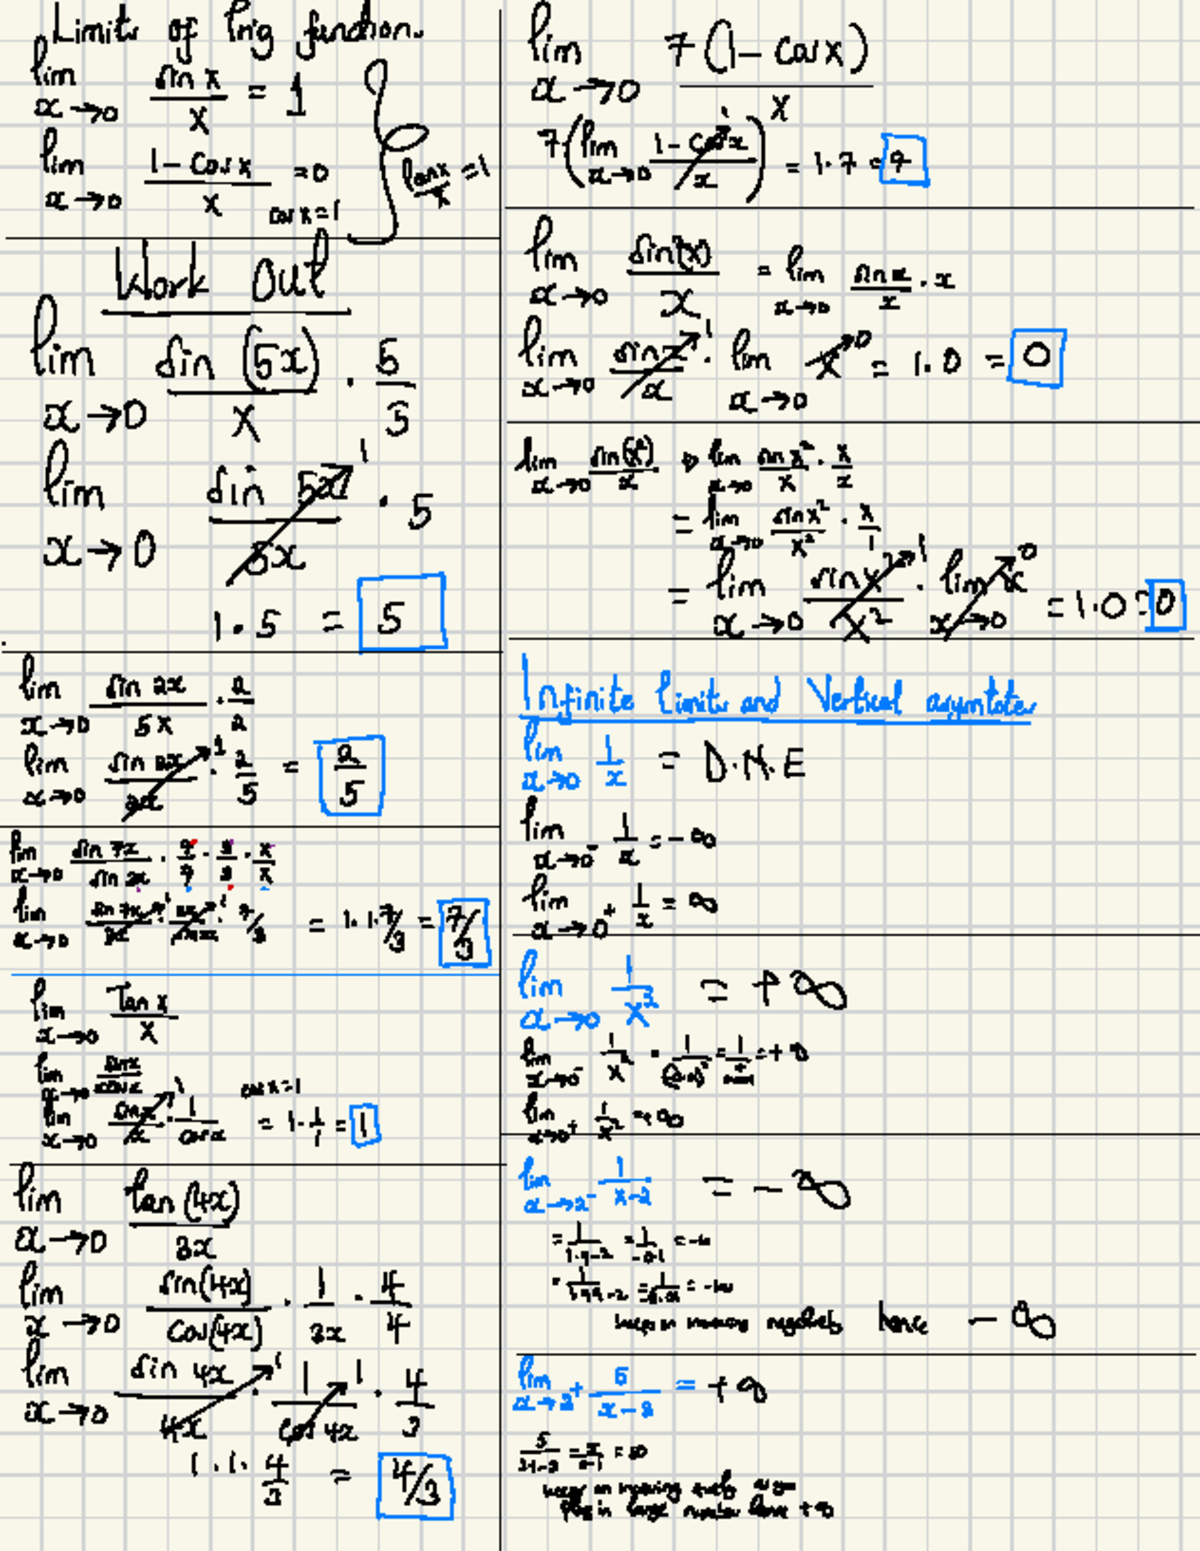 Limits of Trig function.
lim x→0 sin x / x = 1
lim x→0 1 - cos x / x = 0
cos x = 1
tan x / x = 1
Work Out
lim x→0 sin (5x) / x · 5/5
lim x→0 sin 5x / 5x · 5
1
1 · 5 = 5
lim x→0 sin 2x / 5x · 2/2
lim x→0 sin 2x / 2x · 2/5 = 2/5
1
lim x→0 sin 7x / sin 3x · 7/7 · 3/3 · x/x
lim x→0 sin 7x / 7x · 3x / sin 3x · 7/3 = 1 · 1 · 7/3 = 7/3
lim x→0 Tan x / x
lim x→0 sin x / x cos x
cos x = 1
lim x→0 sin x / x · 1 / cos x = 1 · 1/1 = 1
lim x→0 tan (4x) / 3x
lim x→0 sin(4x) / cos(4x) · 1/3x · 4/4
lim x→0 sin 4x / 4x · 1 / cos 4x · 4/3
1 · 1 · 4/3 = 4/3
lim x→0 7 (1 - cos x) / x
7 ( lim x→0 1 - cos x / x ) = 1 · 7 = 7
lim x→0 sin²(x) / x = lim x→0 sin x / x · x
lim x→0 sin x / x · lim x→0 x = 1 · 0 = 0
lim x→0 sin(x²) / x ⇒ lim x→0 sin x² / x · x/x
= lim x→0 sin x² / x² · x/1
= lim x→0 sin x² / x² · lim x→0 x = 1 · 0 = 0
Infinite Limits and Vertical asymtotes
lim x→0 1/x = D.N.E
lim x→0⁻ 1/x = - ∞
lim x→0⁺ 1/x = ∞
lim x→0 1/x² = + ∞
lim x→0⁻ 1/x² = + ∞
lim x→0⁺ 1/x² = + ∞
lim x→2⁻ 1 / x - 2 = - ∞
= 1 / 1.9 - 2 = 1 / -0.1 = -10
= 1 / 1.99 - 2 = 1 / -0.01 = -100
keeps on moving negatively hence - ∞
lim x→3⁺ 5 / x - 3 = + ∞
5 / 3.1 - 3 = 5 / 0.1 = 50
keeps on moving
large number hence + ∞